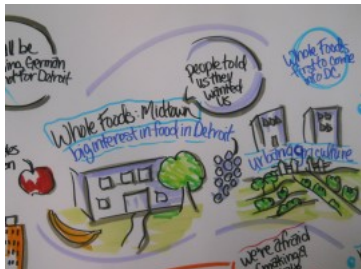 ll be
ing German
for Detroit
people told
us they
wanted
us
Whole Foods
first to come
into DC
Whole Foods: Midtown
big interest in food in Detroit
urban agriculture
we're afraid